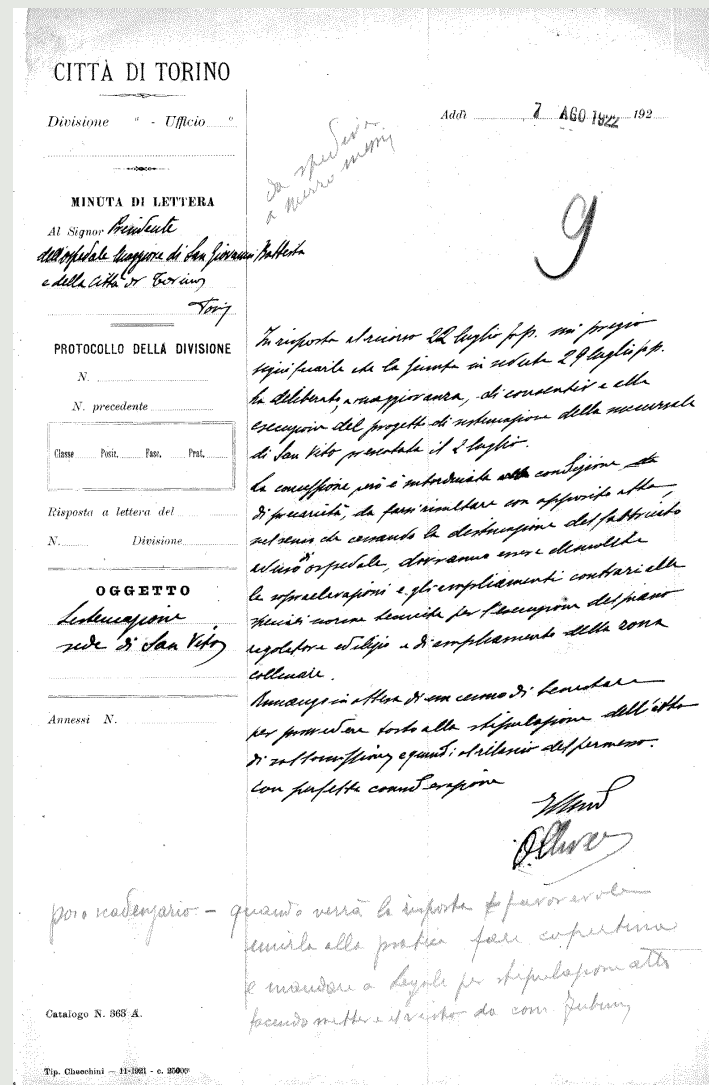 CITTÀ DI TORINO
Divisione " - Ufficio "
Addì 7 AGO 1922 192
da spedirsi
a mezzo messi
9
MINUTA DI LETTERA
Al Signor Presidente
dell'ospedale Maggiore di San Giovanni Battista
e della Città di Torino
PROTOCOLLO DELLA DIVISIONE
N.
N. precedente
Classe Posiz. Fasc. Prat.
Risposta a lettera del
N. Divisione
OGGETTO
Sistemazione
sede di San Vito
Annessi N.
In risposta al ricorso 22 luglio p.p. mi pregio
significarle che la Giunta in seduta 29 luglio p.p.
ha deliberato, a maggioranza, di consentire alla
esecuzione del progetto di sistemazione della succursale
di San Vito presentata il 2 luglio.
La concessione però è subordinata alla condizione
di precarietà, da farsi risultare con apposito atto,
nel senso che cessando la destinazione del fabbricato
ad uso di ospedale, dovranno essere demolite
le sopraelevazioni e gli ampliamenti contrari alle
speciali norme tecniche per l'esecuzione del piano
regolatore edilizio e di ampliamento della zona
collinare.
Rimango in attesa di un cenno di benestare
per provvedere tosto alla stipulazione dell'atto
di sottomissione e quindi al rilascio del permesso.
Con perfetta considerazione
scadenzario - quando verrà la risposta favorevole
unirla alla pratica fare copertina
e mandare a Legale per stipulazione atto
facendo mettere il visto da
Catalogo N. 363 A.
Tip. Checchini — 11-1921 - c. 25000